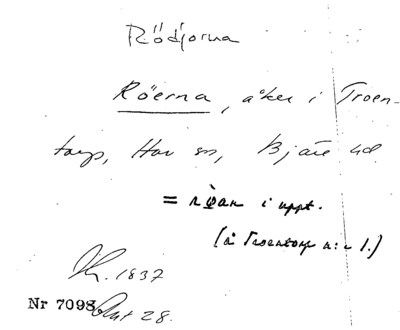 Rödjorna
Röerna, åker i Troen-
torp, Hov sn, Bjäre hd
= i uppt.
(å Troentorp n:r 1.)
1837
Nr 7098 28.